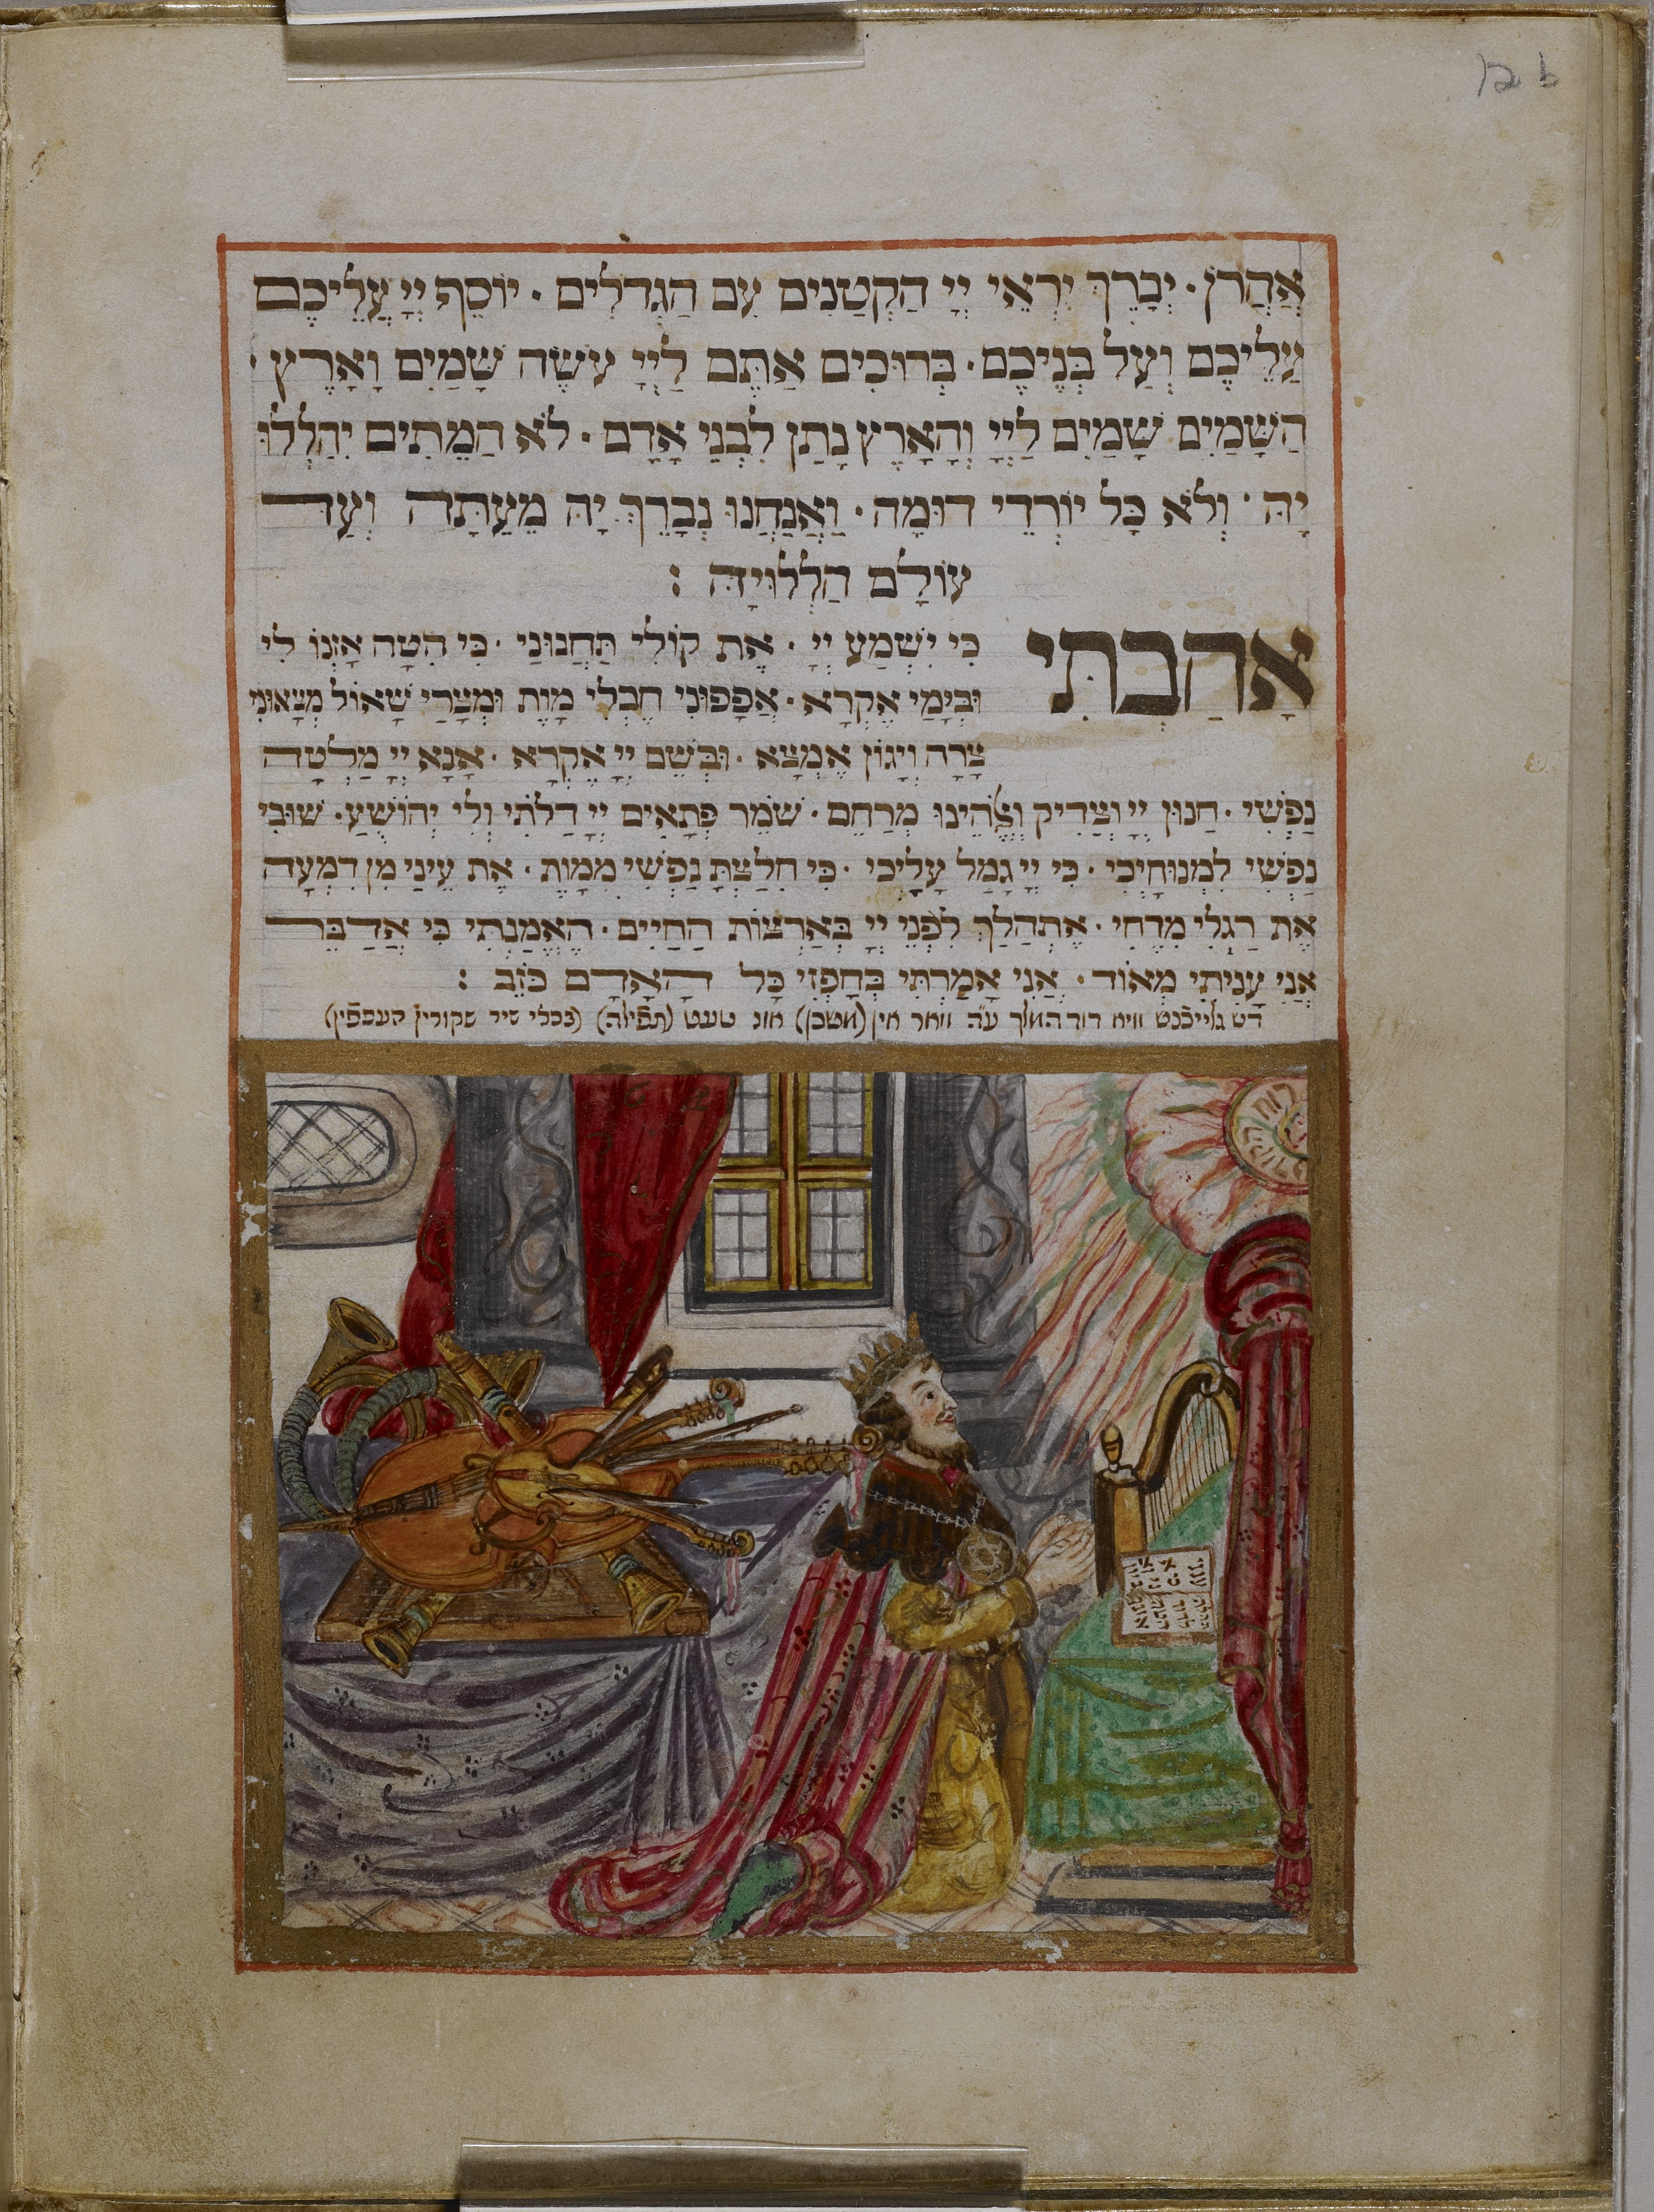 12 b
אַהֲרֹן · יְבָרֵךְ יִרְאֵי יְיָ הַקְטַנִים עִם הַגְדֹלִים · יוֹסֵף יְיָ עֲלֵיכֶם
עֲלֵיכֶם וְעַל בְּנֵיכֶם · בְּרוּכִים אַתֶּם לַיְיָ עֹשֶׂה שָׁמַיִם וָאָרֶץ ·
הַשָּׁמַיִם שָׁמַיִם לַיְיָ וְהָאָרֶץ נָתַן לִבְנֵי אָדָם · לֹא הַמֵתִים יְהַלְלוּ
יָהּ · וְלֹא כָּל יוֹרְדֵי דוּמָה · וַאֲנַחֲנוּ נְבָרֵךְ יָהּ מֵעַתָּה וְעַד
עוֹלָם הַלְלוּיָהּ :
אָהַבְתִּי כִּי יִשְׁמַע יְיָ · אֶת קוֹלִי תַּחֲנוּנַי · כִּי הִטָה אָזְנוֹ לִי
וּבְיָמַי אֶקְרָא · אֲפָפוּנִי חֶבְלֵי מָוֶת וּמְצָרֵי שָׁאוֹל מְצָאוּנִי
צָרָה וְיָגוֹן אֶמְצָא · וּבְשֵׁם יְיָ אֶקְרָא · אָנָא יְיָ מַלְטָה
נַפְשִׁי · חַנוּן יְיָ וְצַדִיק וֵאלֹהֵינוּ מְרַחֵם · שֹׁמֵר פְּתָאִים יְיָ דַלֹתִי וְלִי יְהוֹשִׁעַ · שׁוּבִי
נַפְשִׁי לִמְנוּחָיְכִי · כִּי יְיָ גָמַל עָלָיְכִי · כִּי חִלַצְתָּ נַפְשִׁי מִמָוֶת · אֶת עֵינִי מִן דִמְעָה
אֶת רַגְלִי מִדֶחִי · אֶתְהַלֵךְ לִפְנֵי יְיָ בְּאַרְצוֹת הַחַיִים · הֶאֱמַנְתִּי כִּי אֲדַבֵּר
אֲנִי עָנִיתִי מְאוֹד · אֲנִי אָמַרְתִּי בְחָפְזִי כָּל הָאָדָם כּוֹזֵב :
דש גלייכנט וויא דוד המלך ע״ה וואר אין (משכן) אונ טעט (תפילה) (בכלי שיר